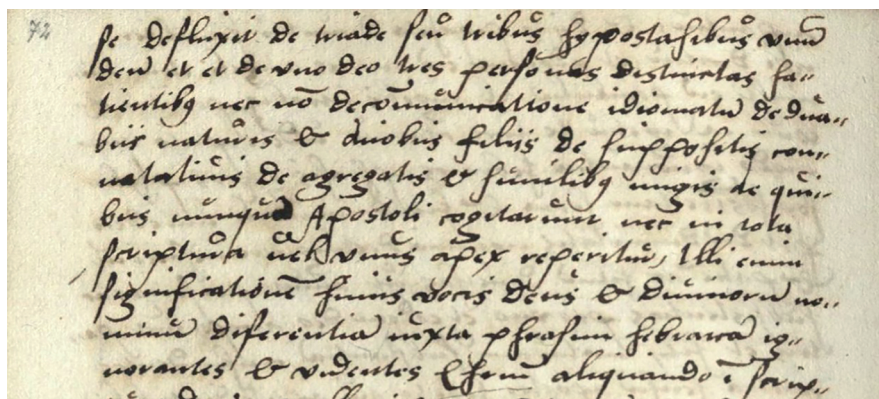 72
se defluxit de triade seu tribus hypostasibus unū
deū et et de uno deo tres personas distinctas fa-
tientibꝫ nec nō de cōmunicatione idiomatū de dua-
bus naturis & duobus filiis de suppositis con-
notativis de agregatis & similibꝫ nugis de qui-
bus nunquā Apostoli cogitarunt nec in tota
scriptura vel unus apex reperitur, Illi enim
significationē huius vocis deus & divinorū no-
minū diferentiā iuxta phrasim hebraicā ig-
norantes & videntes Chrm̄ aliquando ī scrip-